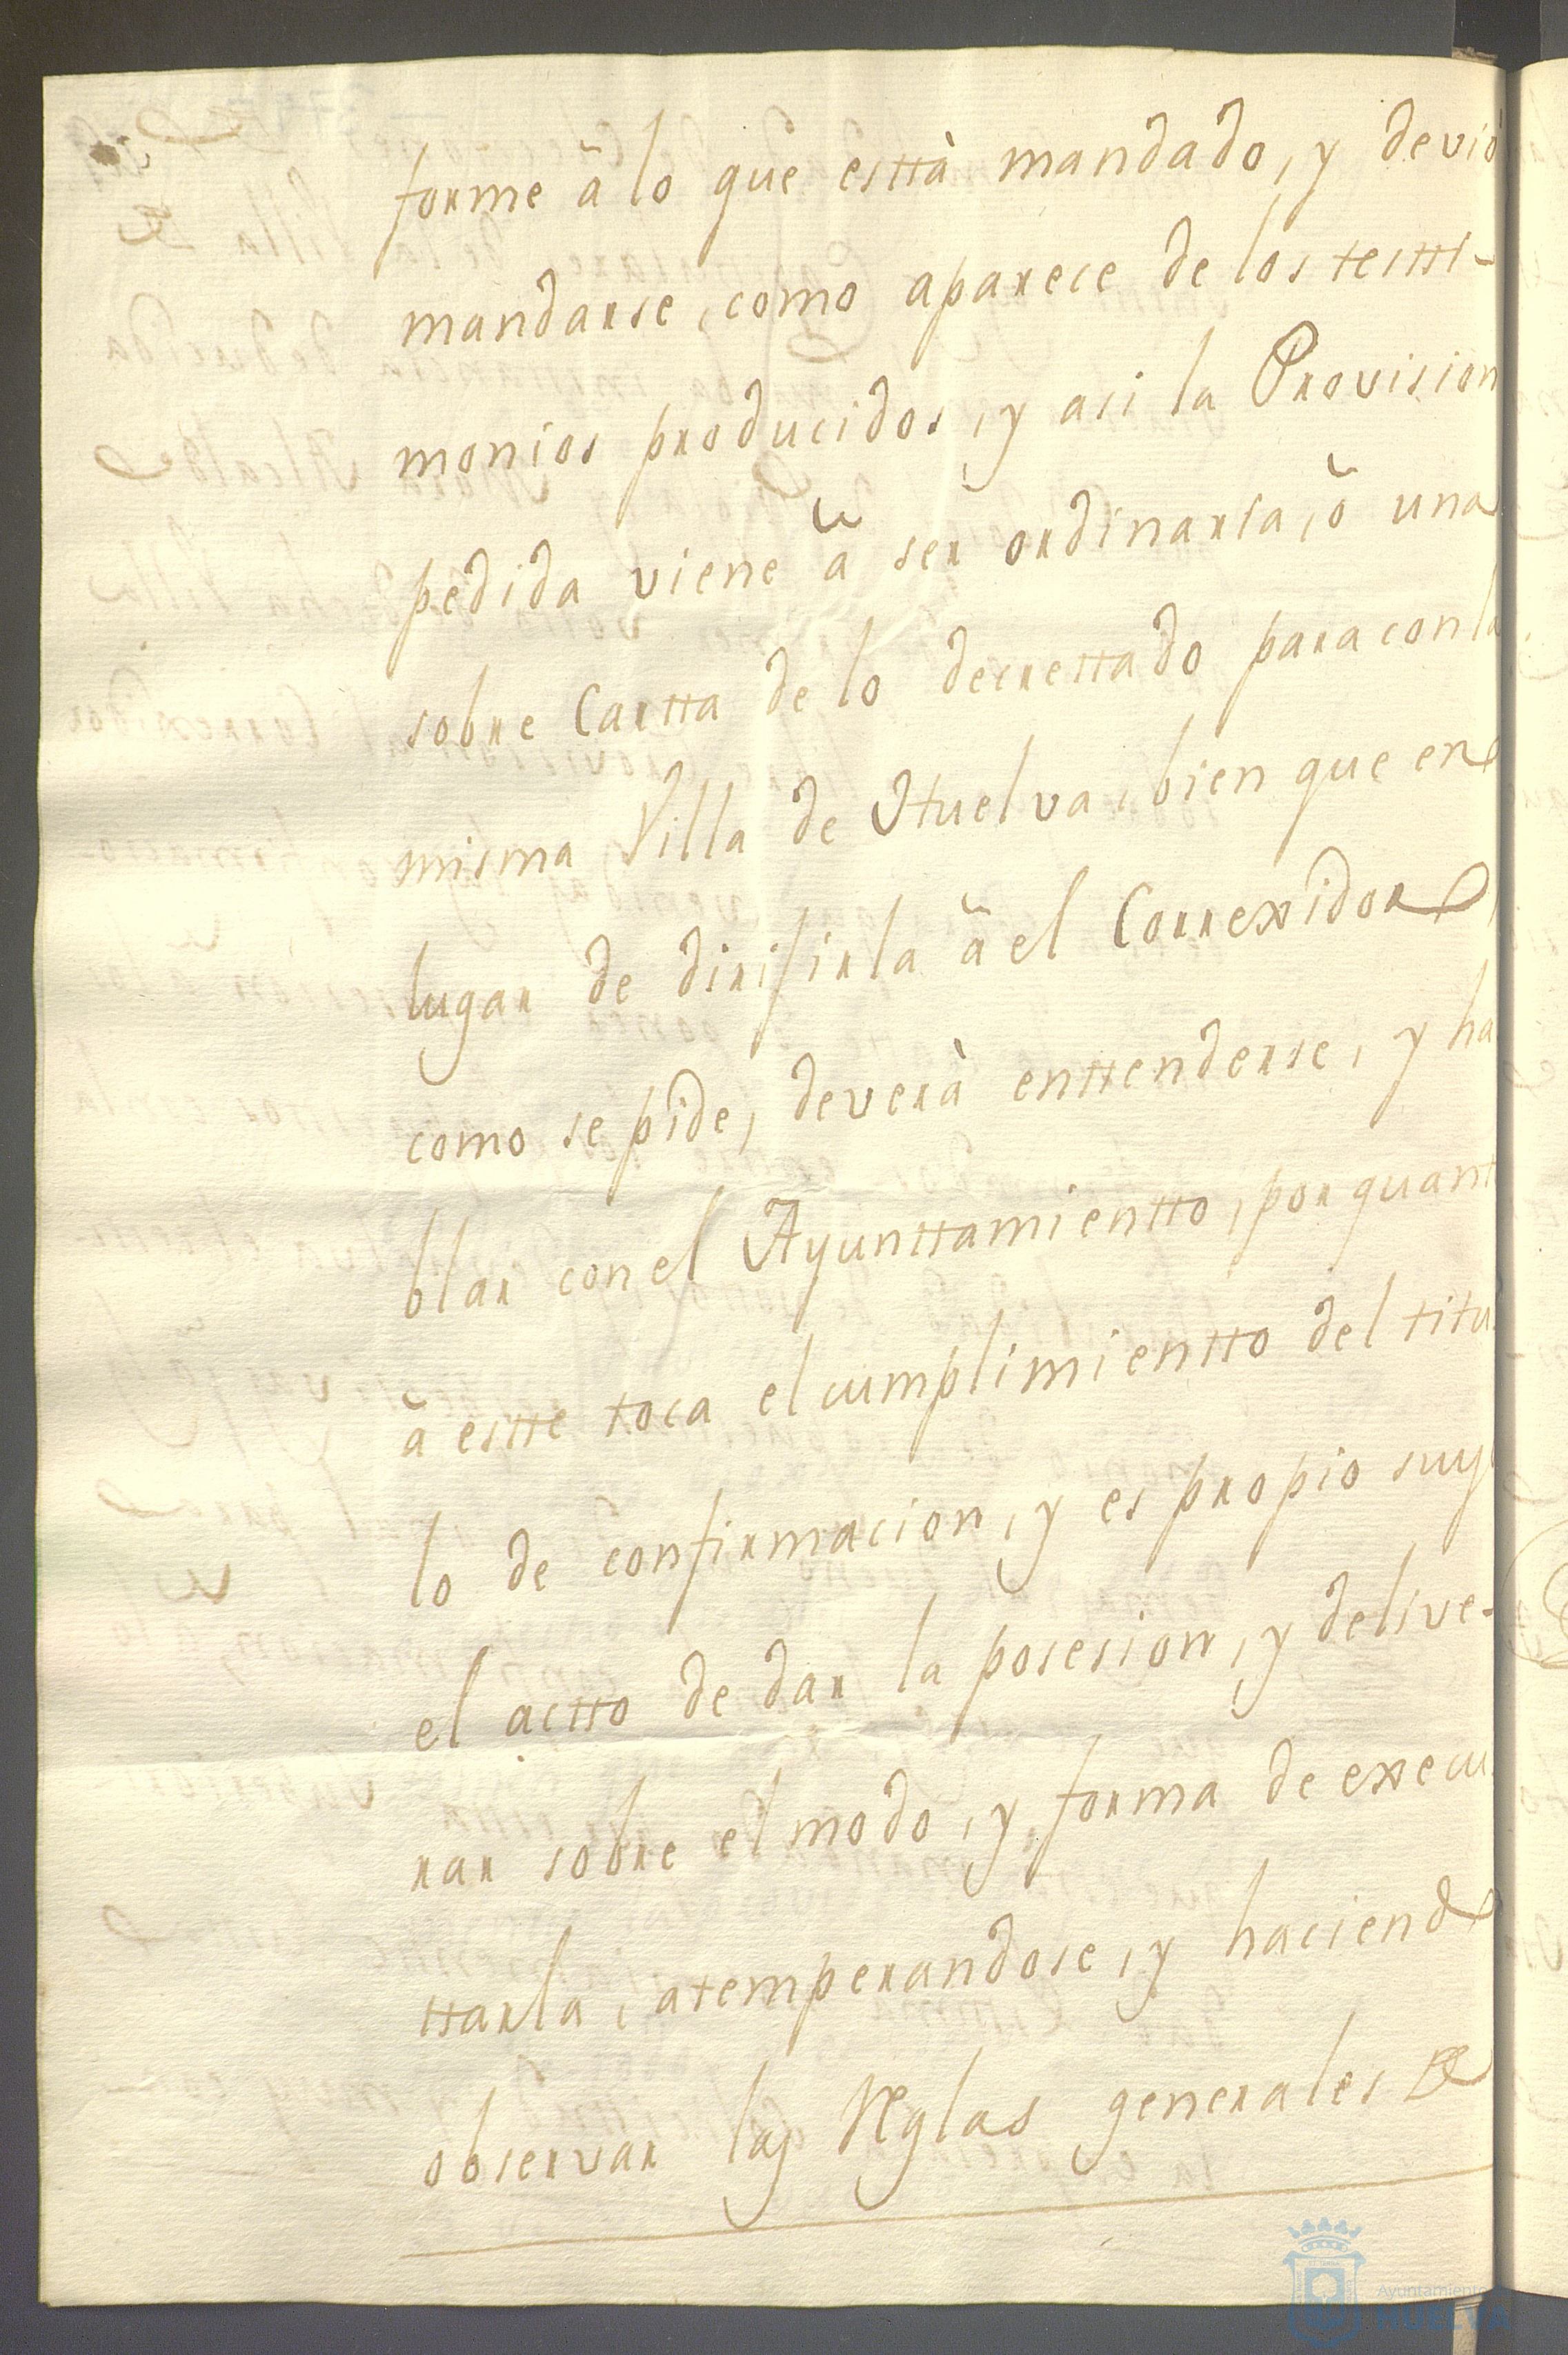 forme â lo que esttà mandado, y devió
mandarse, como aparece de los testti-
monios producidos, y asi la Provision
pedida viene â ser ordinaria, ô una
sobre Cartta de lo decrettado para con la
misma Villa de Huelva, bien que en
lugar de dirijirla â el Correxidor
como se pide, deverà enttenderse, y ha
blar con el Ayunttamientto, por quant
â estte toca el cumplimientto del titu
lo de confirmacion, y es propio suy
el actto de dar la posesion, y delive-
rar sobre el modo, y forma de execu
ttarla, atemperandose, y haciendo
observar las Reglas generales de
Ayuntamiento
HUELVA